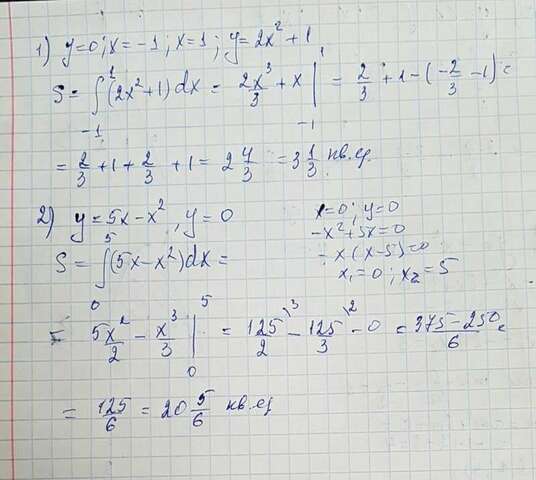 1) y=0; x=-1; x=1; y=2x²+1
S = ∫₋₁¹ (2x²+1)dx = 2x³/3 + x |₋₁¹ = 2/3 + 1 - (-2/3 - 1) =
= 2/3 + 1 + 2/3 + 1 = 2 4/3 = 3 1/3 кв.ед.
2) y=5x-x², y=0
x=0; y=0
-x²+5x=0
-x(x-5)=0
x₁=0; x₂=5
S = ∫₀⁵ (5x-x²)dx =
= 5x²/2 - x³/3 |₀⁵ = 125\³/2 - 125\²/3 - 0 = 375-250/6 =
= 125/6 = 20 5/6 кв.ед